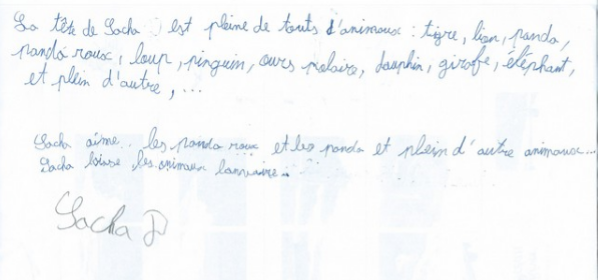 La tête de Sacha est pleine de touts d'animaux : tigre, lion, panda,
panda roux, loup, pinguin, ours polaire, dauphin, girafe, éléphant,
et plein d'autre, ...
Sacha aime.. les panda roux et les panda et plein d'autre animaux...
Sacha les animaux
Sacha D